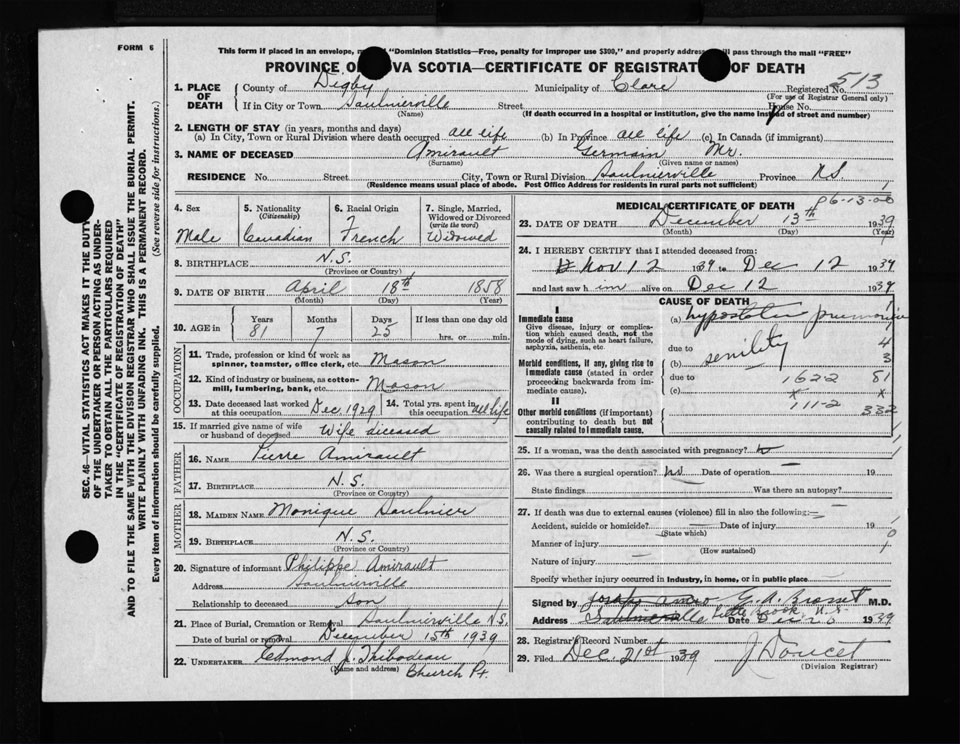 FORM 6
This form if placed in an envelope, "Dominion Statistics—Free, penalty for improper use $300," and properly addres will pass through the mail "FREE"
PROVINCE O VA SCOTIA—CERTIFICATE OF REGISTRAT OF DEATH
513
1. PLACE OF DEATH County of Digby Municipality of Clare Registered No.
(For use of Registrar General only)
If in City or Town Saulnierville Street House No.
(Name) (If death occurred in a hospital or institution, give the name instead of street and number)
2. LENGTH OF STAY (in years, months and days)
(a) In City, Town or Rural Division where death occurred all life (b) In Province all life (c) In Canada (if immigrant)
3. NAME OF DECEASED Amirault Germain Mr.
(Surname) (Given name or names)
RESIDENCE No. Street City, Town or Rural Division Saulnierville Province N.S.
(Residence means usual place of abode. Post Office Address for residents in rural parts not sufficient)
4. Sex 5. Nationality (Citizenship) 6. Racial Origin 7. Single, Married, Widowed or Divorced (write the word)
Male Canadian French Widowed
8. BIRTHPLACE N.S.
(Province or Country)
9. DATE OF BIRTH April 18th 1858
(Month) (Day) (Year)
10. AGE in Years Months Days If less than one day old
81 7 25 hrs. or min.
OCCUPATION
11. Trade, profession or kind of work as spinner, teamster, office clerk, etc. Mason
12. Kind of industry or business, as cotton-mill, lumbering, bank, etc. Mason
13. Date deceased last worked at this occupation Dec. 1929 14. Total yrs. spent in this occupation all life
15. If married give name of wife or husband of deceased Wife diceased
FATHER
16. NAME Pierre Amirault
17. BIRTHPLACE N.S.
(Province or Country)
MOTHER
18. MAIDEN NAME Monique Saulnier
19. BIRTHPLACE N.S.
(Province or Country)
20. Signature of informant Philippe Amirault
Address Saulnierville
Relationship to deceased son
21. Place of Burial, Cremation or Removal Saulnierville N.S.
Date of burial or removal December 15th 1939
22. UNDERTAKER Edmond J. Thibodeau
(Name and address) Church Pt.
MEDICAL CERTIFICATE OF DEATH
23. DATE OF DEATH December 13th 1939
(Month) (Day) (Year)
24. I HEREBY CERTIFY that I attended deceased from:
Nov 12 1939 to Dec 12 1939
and last saw him alive on Dec 12 1939
CAUSE OF DEATH
I
Immediate cause
Give disease, injury or complication which caused death, not the mode of dying, such as heart failure, asphyxia, asthenia, etc.
(a) hypostatic pneumonia
due to
Morbid conditions, if any, giving rise to immediate cause (stated in order proceeding backwards from immediate cause).
(b) senility
due to
(c)
4
3
162-2 81
x x
111-2 332
II
Other morbid conditions (if important) contributing to death but not causally related to immediate cause.
25. If a woman, was the death associated with pregnancy?
26. Was there a surgical operation? no Date of operation — 19
State findings Was there an autopsy?
27. If death was due to external causes (violence) fill in also the following:—
Accident, suicide or homicide? Date of injury 19
(State which)
Manner of injury
(How sustained)
Nature of injury
Specify whether injury occurred in industry, in home, or in public place
Signed by G. A. Brosset M.D.
Address Little Brook N.S. Date 1939
28. Registrar's Record Number
29. Filed Dec. 21st 1939 J Doucet
(Division Registrar)
SEC. 46—VITAL STATISTICS ACT MAKES IT THE DUTY
OF THE UNDERTAKER OR PERSON ACTING AS UNDER-
TAKER TO OBTAIN ALL THE PARTICULARS REQUIRED
IN THE "CERTIFICATE OF REGISTRATION OF DEATH"
AND TO FILE THE SAME WITH THE DIVISION REGISTRAR WHO SHALL ISSUE THE BURIAL PERMIT.
WRITE PLAINLY WITH UNFADING INK. THIS IS A PERMANENT RECORD.
Every item of information should be carefully supplied. (See reverse side for instructions.)